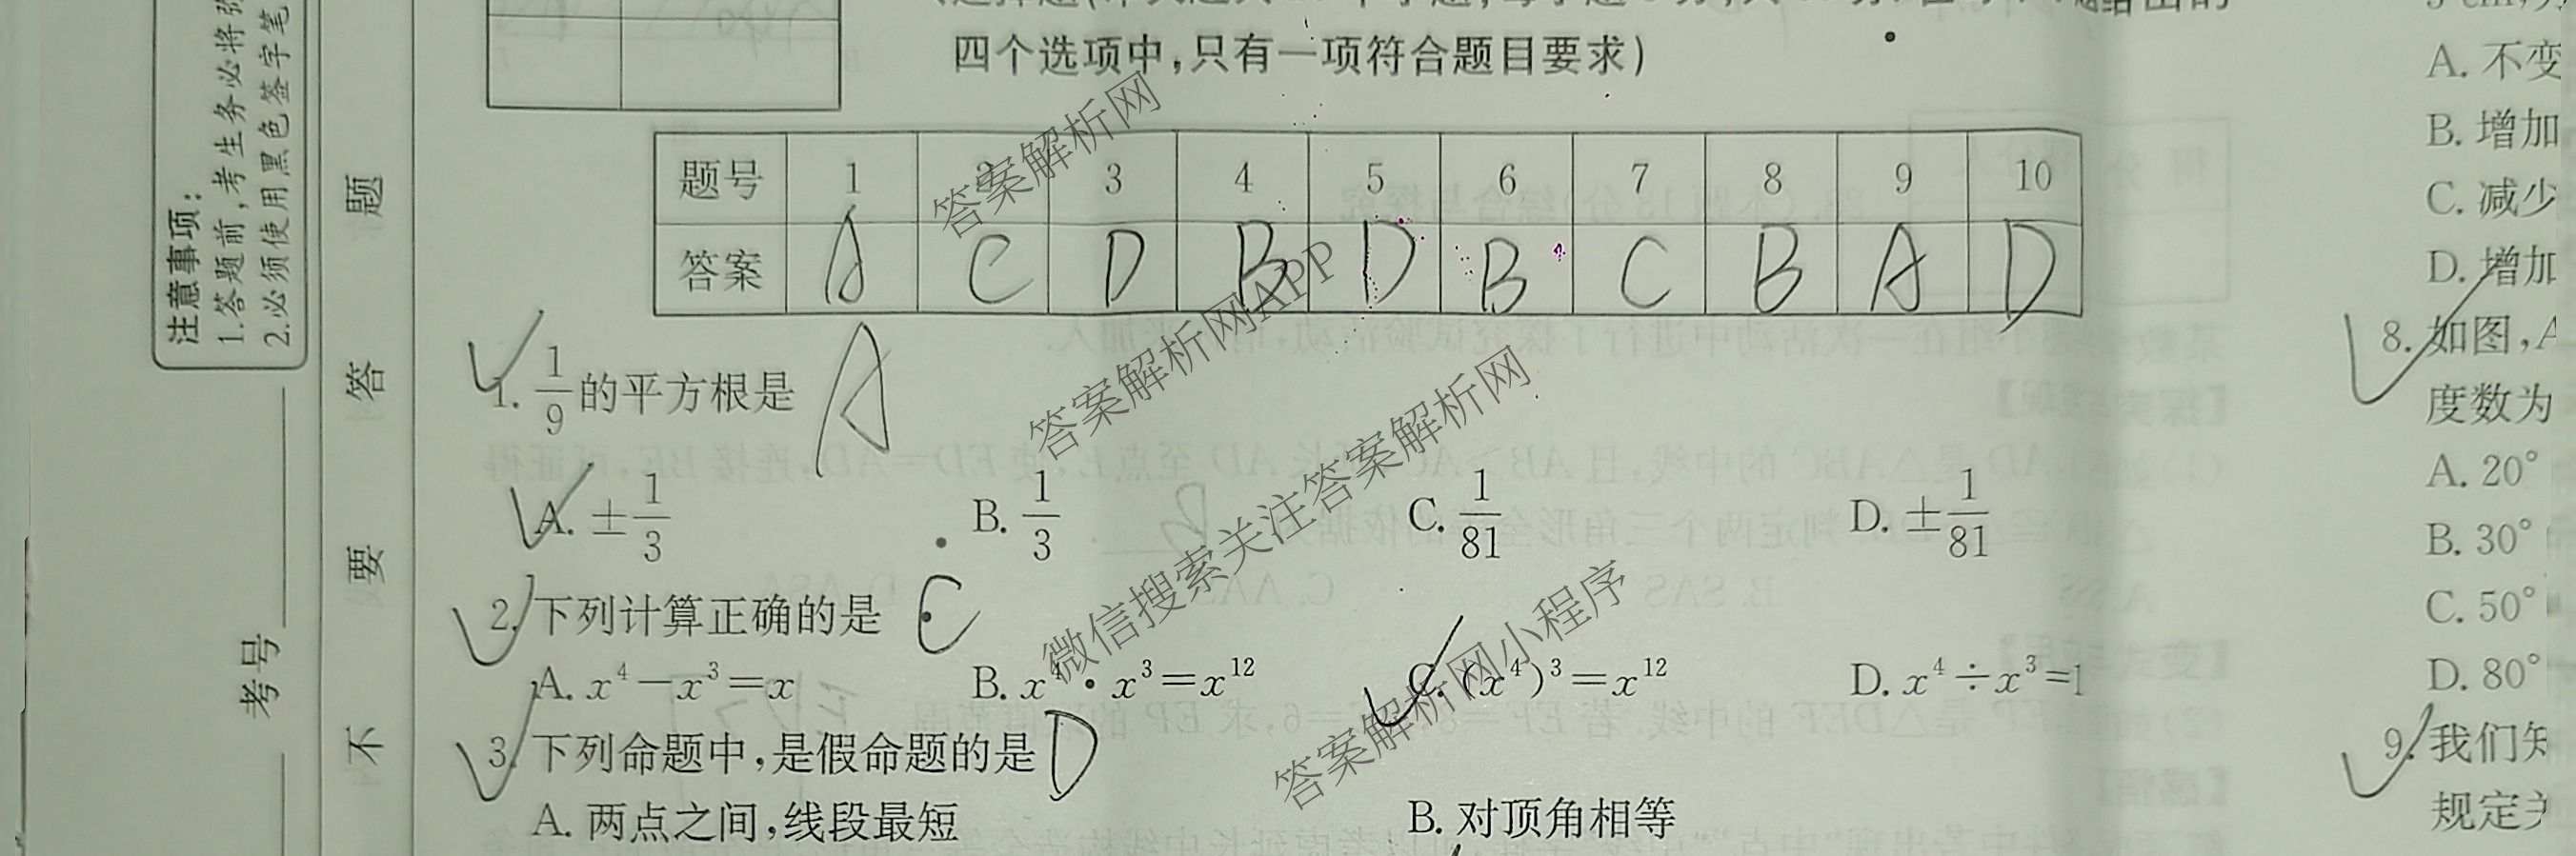 四个选项中,只有一项符合题目要求)
题号 1 2 3 4 5 6 7 8 9 10
答案 A C D B D B C B A D
1. 1/9的平方根是 A
A. ±1/3 B. 1/3 C. 1/81 D. ±1/81
2. 下列计算正确的是 C
A. x⁴-x³=x B. x⁴·x³=x¹² C. (x⁴)³=x¹² D. x⁴÷x³=1
3. 下列命题中,是假命题的是 D
A. 两点之间,线段最短 B. 对顶角相等
A. 不变
B. 增加
C. 减少
D. 增加
8. 如图,A
度数为
A. 20°
B. 30°
C. 50°
D. 80°
9. 我们知
规定关
注意事项:
1.答题前,考生务必将
2.必须使用黑色签字笔
考号
题
答
要
不
答案解析网
答案解析网APP
微信搜索关注答案解析网
答案解析网小程序